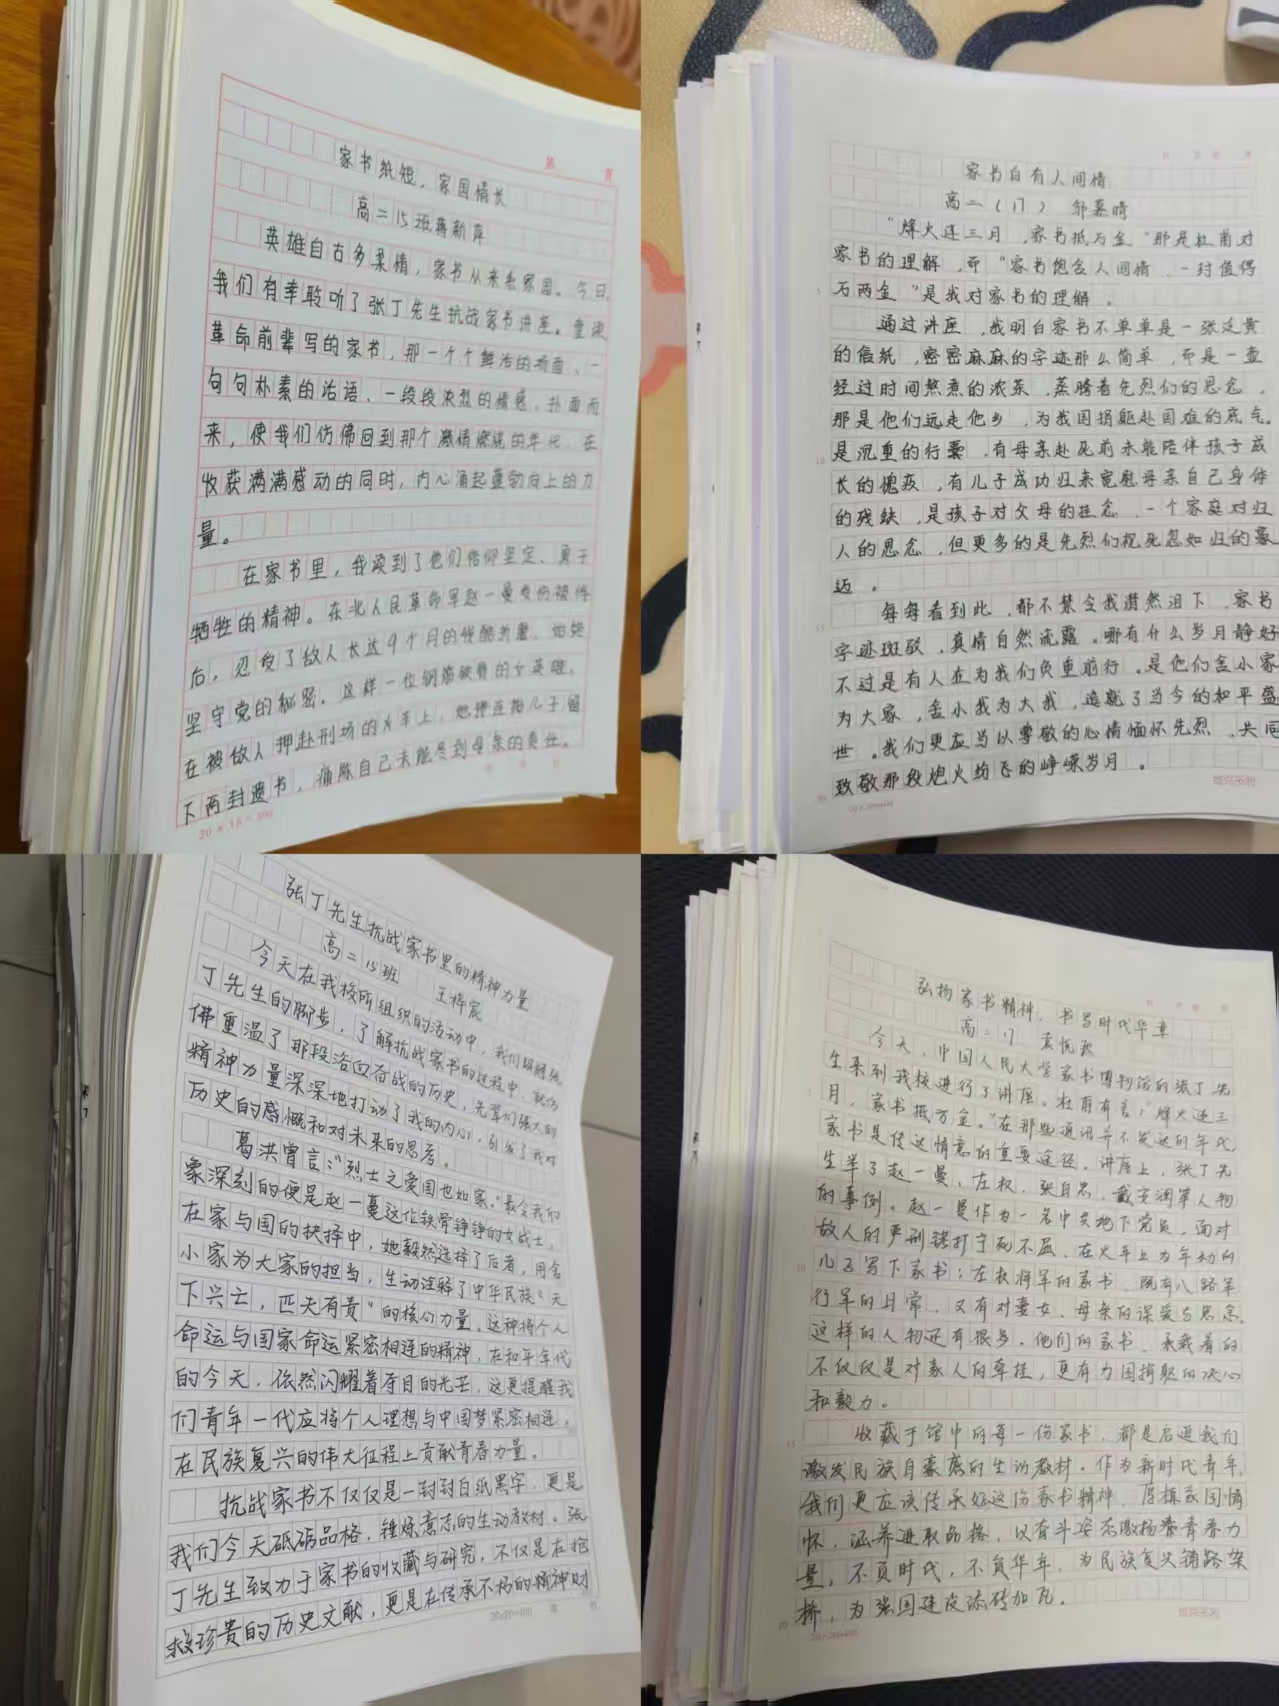 第 页
家书纸短，家国情长
高二15班蒋新萍
英雄自古多柔情，家书从来系家国。今日，
我们有幸聆听了张丁先生抗战家书讲座。重读
革命前辈写的家书，那一个个鲜活的场面、一
句句朴素的话语、一段段浓烈的情感，扑面而
来，使我们仿佛回到那个激情燃烧的年代。在
收获满满感动的同时，内心涌起蓬勃向上的力
量。
在家书里，我读到了他们信仰坚定、勇于
牺牲的精神。东北人民革命军赵一曼受伤被俘
后，忍受了敌人长达9个月的残酷折磨，她始
坚守党的秘密。这样一位钢筋铁骨的女英雄，
在被敌人押赴刑场的火车上，她接连给儿子留
下两封遗书，痛陈自己未能尽到母亲的责任。
20×15=300
家书自有人间情
高二（17） 邹慕晴
“烽火连三月，家书抵万金”那是杜甫对
家书的理解，而“家书饱含人间情，一封值得
万两金”是我对家书的理解。
通过讲座，我明白家书不单单是一张泛黄
的信纸，密密麻麻的字迹那么简单，而是一壶
经过时间熬煮的浓茶，蒸腾着先烈们的思念，
那是他们远走他乡，为我国捐躯赴国难的底气。
是沉重的行囊，有母亲赴死前未能陪伴孩子成
长的愧疚，有儿子成功归来宽慰母亲自己身体
的残缺，是孩子对父母的挂念，一个家庭对归
人的思念，但更多的是先烈们视死忽如归的豪
迈。
每每看到此，都不禁令我潸然泪下，家书
字迹斑驳，真情自然流露。哪有什么岁月静好
不过是有人在为我们负重前行。是他们舍小家
为大家，舍小我为大我，造就了当今的和平盛
世。我们更应当以尊敬的心情缅怀先烈，共同
致敬那段炮火纷飞的峥嵘岁月。
张丁先生抗战家书里的精神力量
高二15班 王梓宸
今天在我校所组织的活动中，我们跟随张
丁先生的脚步，了解抗战家书的过程中，就仿
佛重温了那段浴血奋战的历史，先辈们强大的
精神力量深深地打动了我的内心，引发了我对
历史的感慨和对未来的思考。
葛洪曾言：“烈士之爱国也如家。”最令我印
象深刻的便是赵一曼这位铁骨铮铮的女战士，
在家与国的抉择中，她毅然选择了后者，用舍
小家为大家的担当，生动诠释了中华民族“天
下兴亡，匹夫有责”的核心力量。这种将个人
命运与国家命运紧密相连的精神，在和平年代
的今天，依然闪耀着夺目的光芒，这更提醒我
们青年一代应将个人理想与中国梦紧密相连，
在民族复兴的伟大征程上贡献青春力量。
抗战家书不仅仅是一封封白纸黑字，更是
我们今天砥砺品格，锤炼意志的生动教材。张
丁先生致力于家书的收藏与研究，不仅是在抢
救珍贵的历史文献，更是在传承不朽的精神财
20×20=400
弘扬家书精神，书写时代华章
高二17 袁悦歆
今天，中国人民大学家书博物馆的张丁先
生来到我校进行了讲座。杜甫有言：“烽火连三
月，家书抵万金。”在那些通讯并不发达的年代，
家书是传达情意的重要途径。讲座上，张丁先
生举了赵一曼、左权、张自忠、戴安澜等人物
的事例。赵一曼作为一名中共地下党员，面对
敌人的严刑拷打宁死不屈，在火车上为年幼的
儿子写下家书；左权将军的家书，既有八路军
行军的日常，又有对妻女、母亲的深爱与思念。
这样的人物还有很多，他们的家书，承载着的
不仅仅是对家人的牵挂，更有为国捐躯的决心
和毅力。
收藏于馆中的每一份家书，都是启迪我们
激发民族自豪感的生动教材。作为新时代青年，
我们更应该传承好这份家书精神，厚植家国情
怀，涵养进取品格，以奋斗姿态激扬青春力
量，不负时代，不负华年，为民族复兴铺路架
桥，为强国建设添砖加瓦。
20×20=400